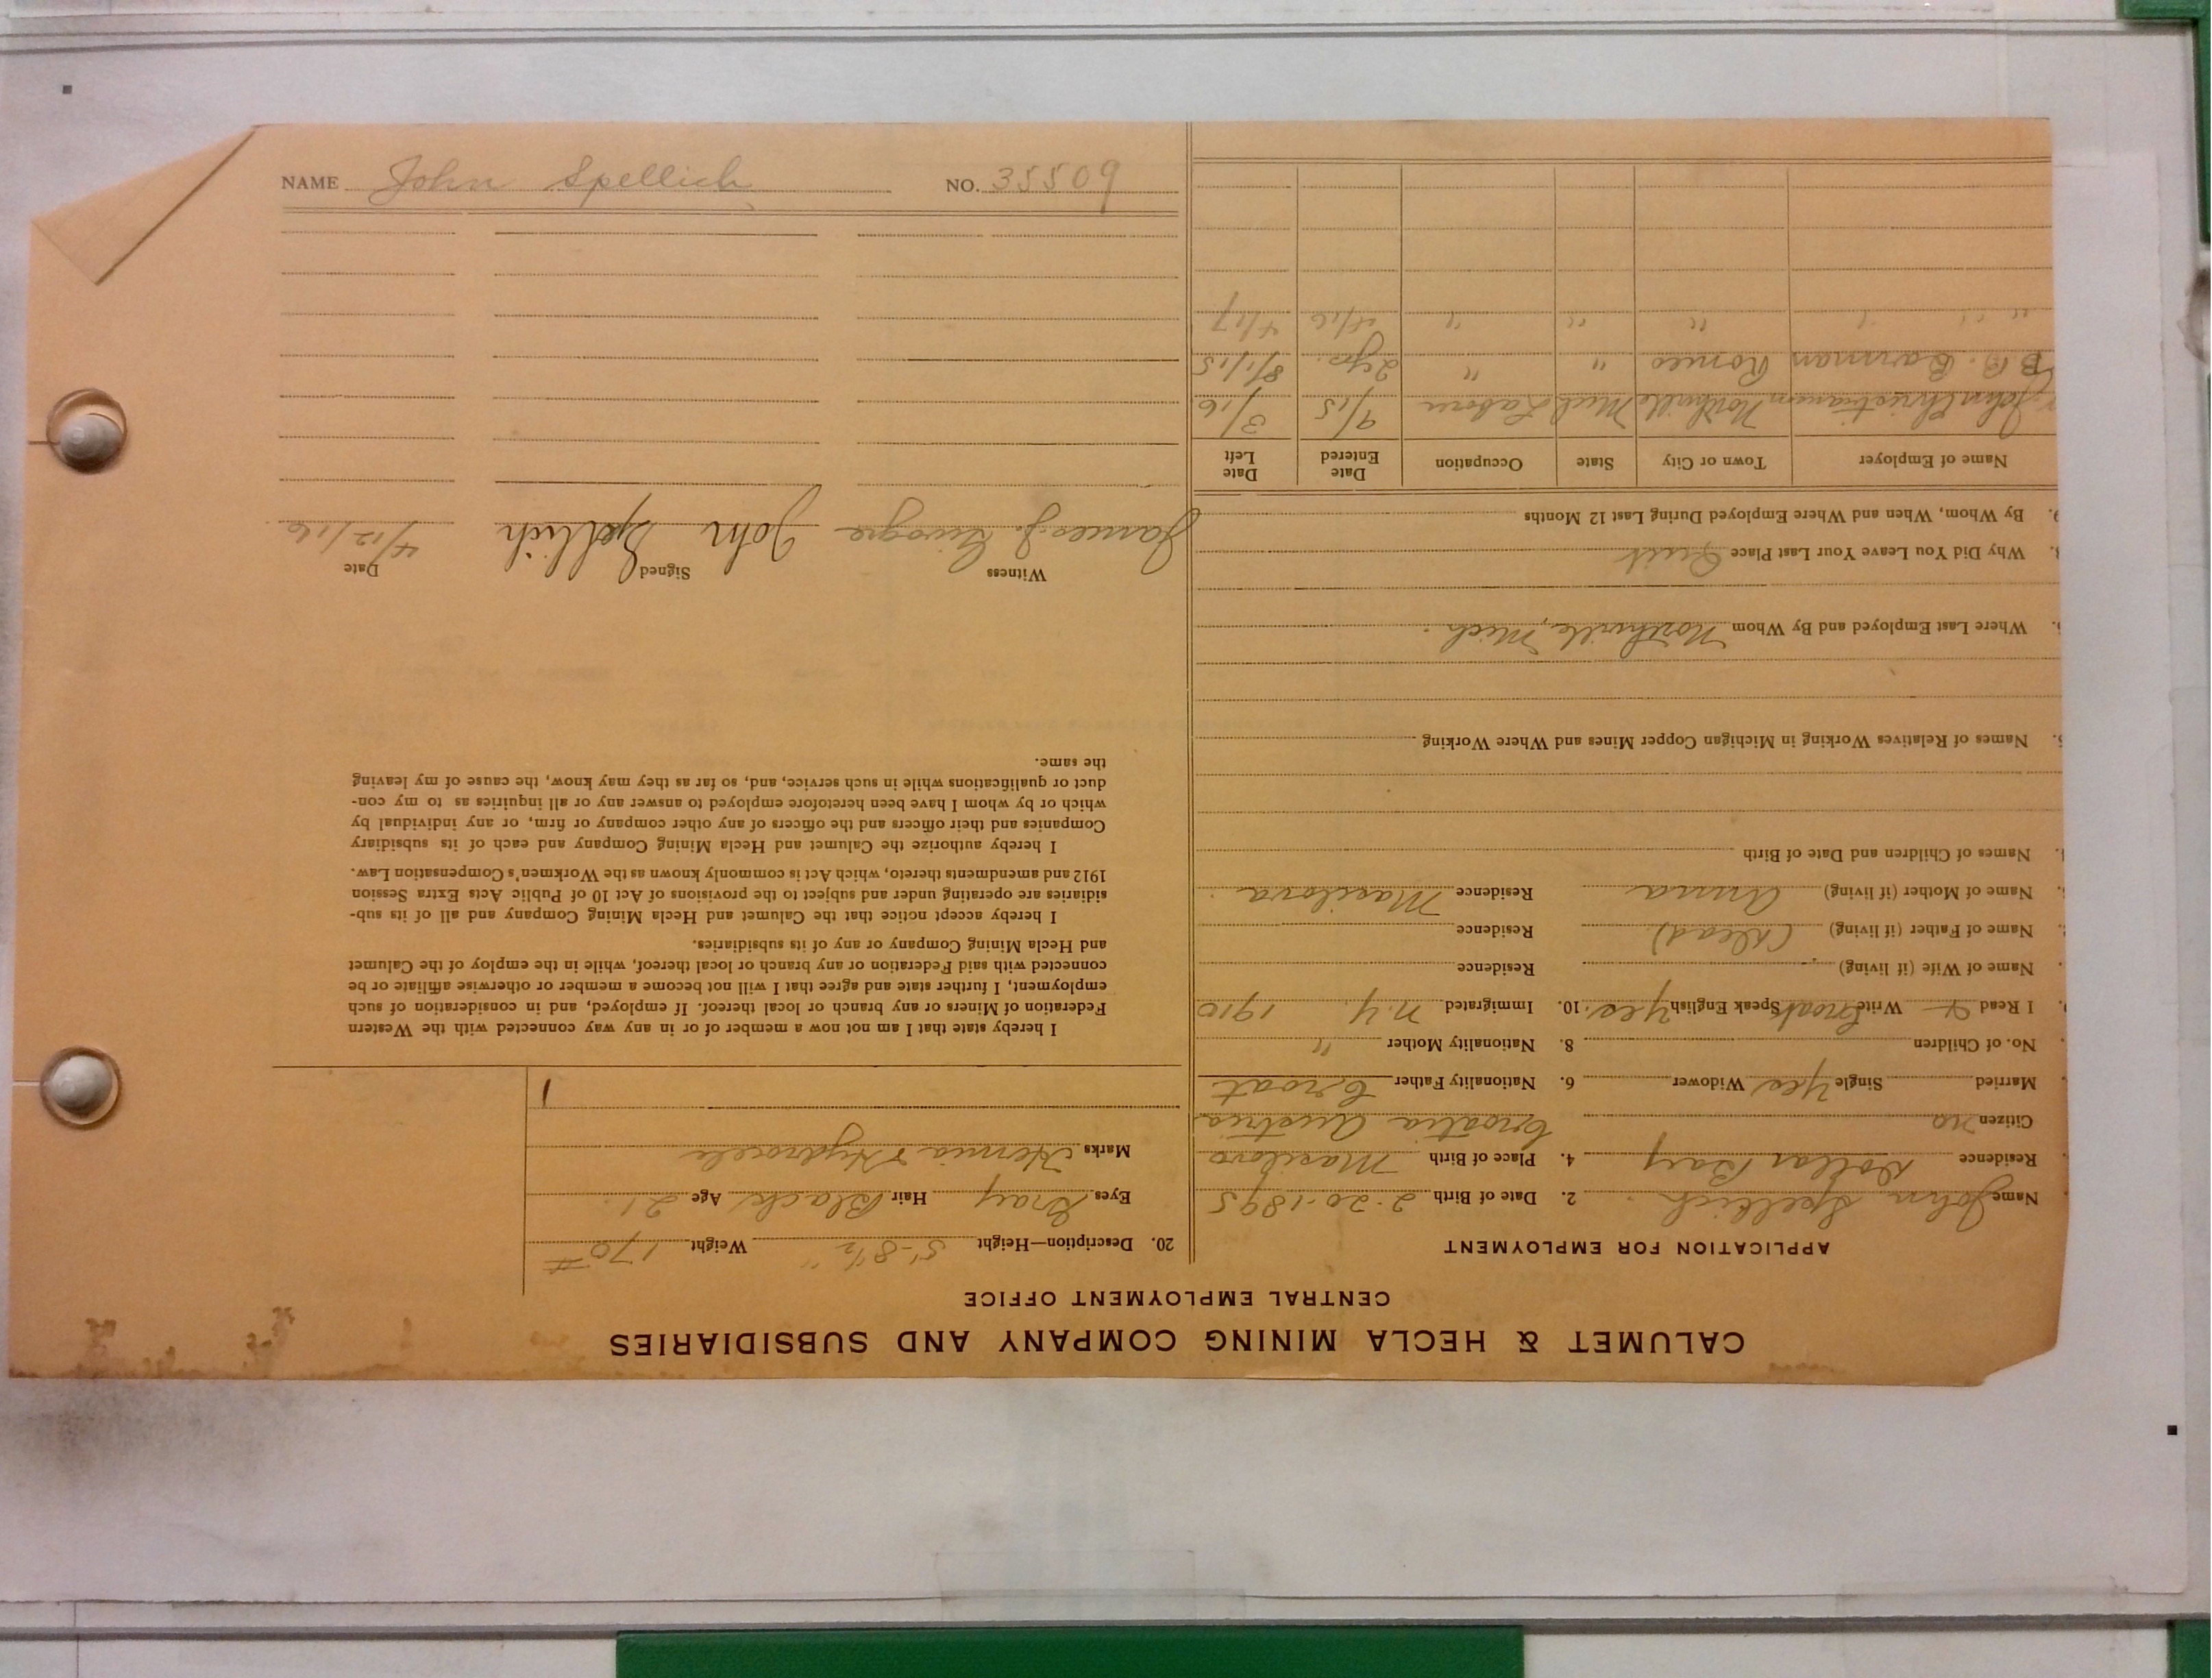 NAME John Spellich NO. 35509
CALUMET & HECLA MINING COMPANY AND SUBSIDIARIES
CENTRAL EMPLOYMENT OFFICE
APPLICATION FOR EMPLOYMENT
Name John Spellich 2. Date of Birth 2-20-1895
Residence Dollar Bay 4. Place of Birth Masilovo
Citizen no Croatia Austria
Married Single Yes Widower 6. Nationality Father Croat
No. of Children 8. Nationality Mother "
I Read & Write Croat Speak English Yes. 10. Immigrated N.Y. 1910
Name of Wife (if living) Residence
Name of Father (if living) (Dead) Residence
Name of Mother (if living) Anna Residence Masilova
Names of Children and Date of Birth
Names of Relatives Working in Michigan Copper Mines and Where Working
Where Last Employed and By Whom Northville, Mich.
Why Did You Leave Your Last Place Quit
By Whom, When and Where Employed During Last 12 Months
Name of Employer Town or City State Occupation Date Entered Date Left
John Christianson Northville Mich Labor 9/15 3/16
B. B. Romeo " " 2 yrs. 8/1/15
" " " " " " 4/16 4/17
20. Description—Height 5'-8½" Weight 170#
Eyes Gray Hair Black Age 21
Marks Hernia & Hydrocele
I hereby state that I am not now a member of or in any way connected with the Western
Federation of Miners or any branch or local thereof. If employed, and in consideration of such
employment, I further state and agree that I will not become a member or otherwise affiliate or be
connected with said Federation or any branch or local thereof, while in the employ of the Calumet
and Hecla Mining Company or any of its subsidiaries.
I hereby accept notice that the Calumet and Hecla Mining Company and all of its sub-
sidiaries are operating under and subject to the provisions of Act 10 of Public Acts Extra Session
1912 and amendments thereto, which Act is commonly known as the Workmen's Compensation Law.
I hereby authorize the Calumet and Hecla Mining Company and each of its subsidiary
Companies and their officers and the officers of any other company or firm, or any individual by
which or by whom I have been heretofore employed to answer any or all inquiries as to my con-
duct or qualifications while in such service, and, so far as they may know, the cause of my leaving
the same.
Witness Signed Date
James J. John Spellich 4/12/16